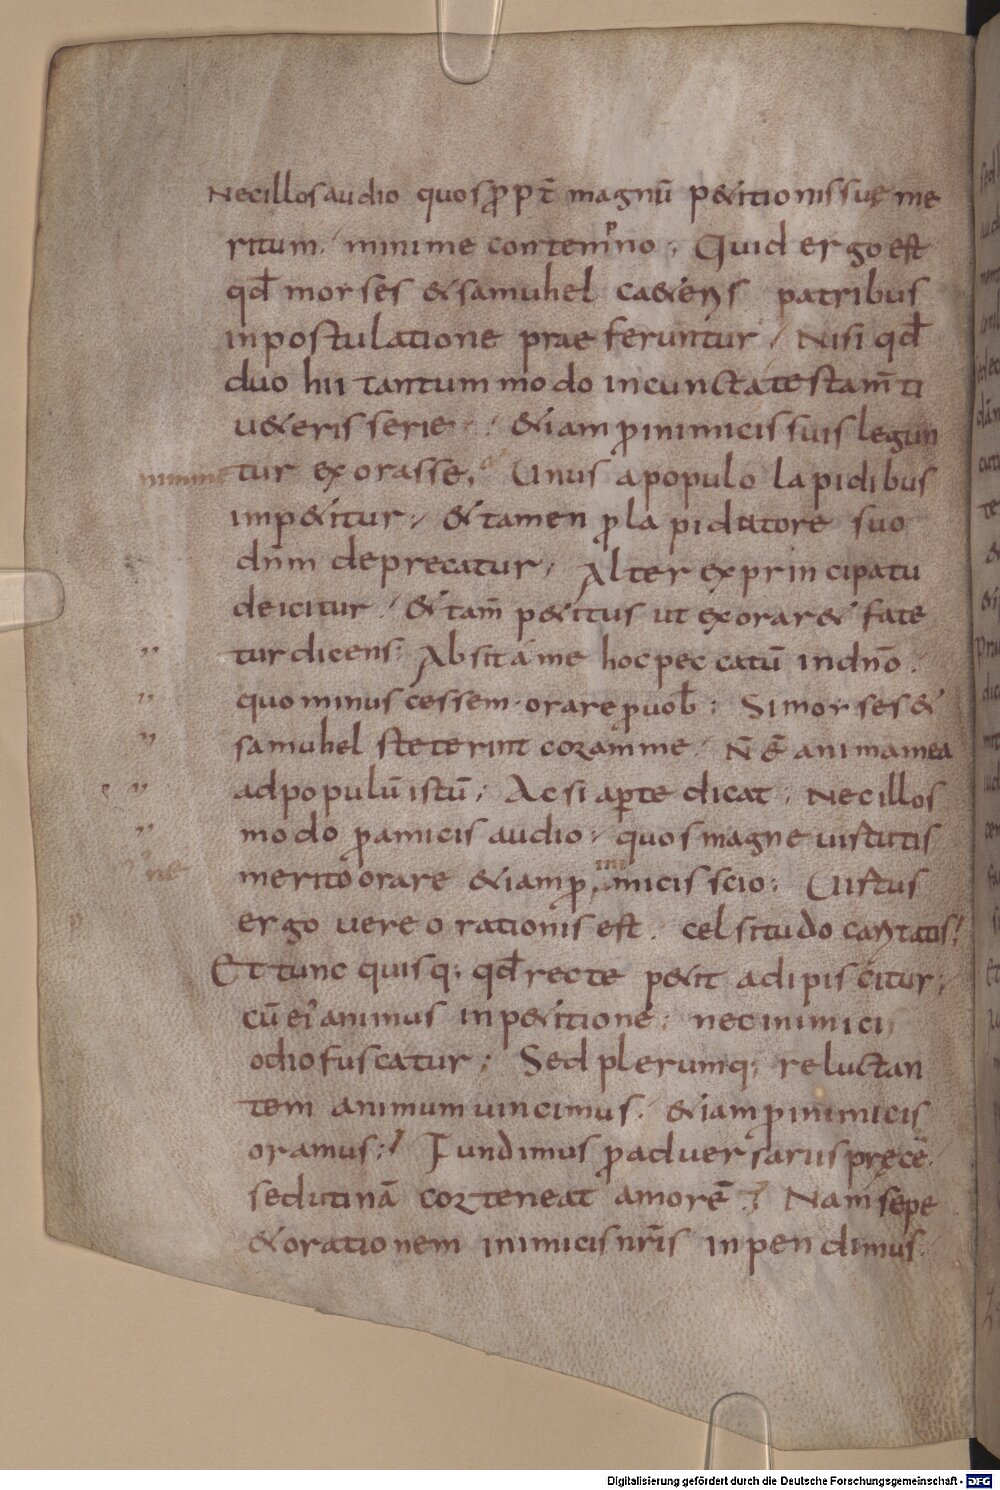 Nec illos audio quos ꝓpt̄ magnū p&itionis sue me
ritum. minime contemᵖno; Quid ergo est
qđ morses & samuhel ca&eris patribus
inpostulatione praeferuntur. Nisi qđ
duo hii tantummodo incuncta testam̄ti
u&eris serie. &iam ꝓ inimicis suis legun
tur exorasse; Unus apopulo lapidibus
imp&itur; & tamen ꝓ lapidatore suo
dn̄m deprecatur; Alter exprincipatu
deicitur. & tam̄ p&itus ut exorar& fate
tur dicens; Absit ame hoc peccatū indn̄o.
quominus cessem orare ꝓ uob̄; Si morses &
samuhel steterint coram me. N̄ ē anima mea
adpopulū istū; Ac si aꝑte dicat; Nec illos
modo ꝓ amicis audio; quos magne uirtutis
merito orare &iam ꝓ inimicis scio; Uirtus
ergo uere orationis est. celsitudo caritatis;
Et tunc quisq; qđ recte p&it adipiscitur;
cū ei' animus inp&itione; nec inimici
odio fuscatur; Sed plerumq; reluctan
tem animum uincimus. &iam ꝓ inimicis
oramus; Fundimus ꝓ aduersariis precē.
sed utinā cor teneat amorē; Nam sepe
& orationem inimicis nr̄is inpendimus.
Digitalisierung gefördert durch die Deutsche Forschungsgemeinschaft - DFG